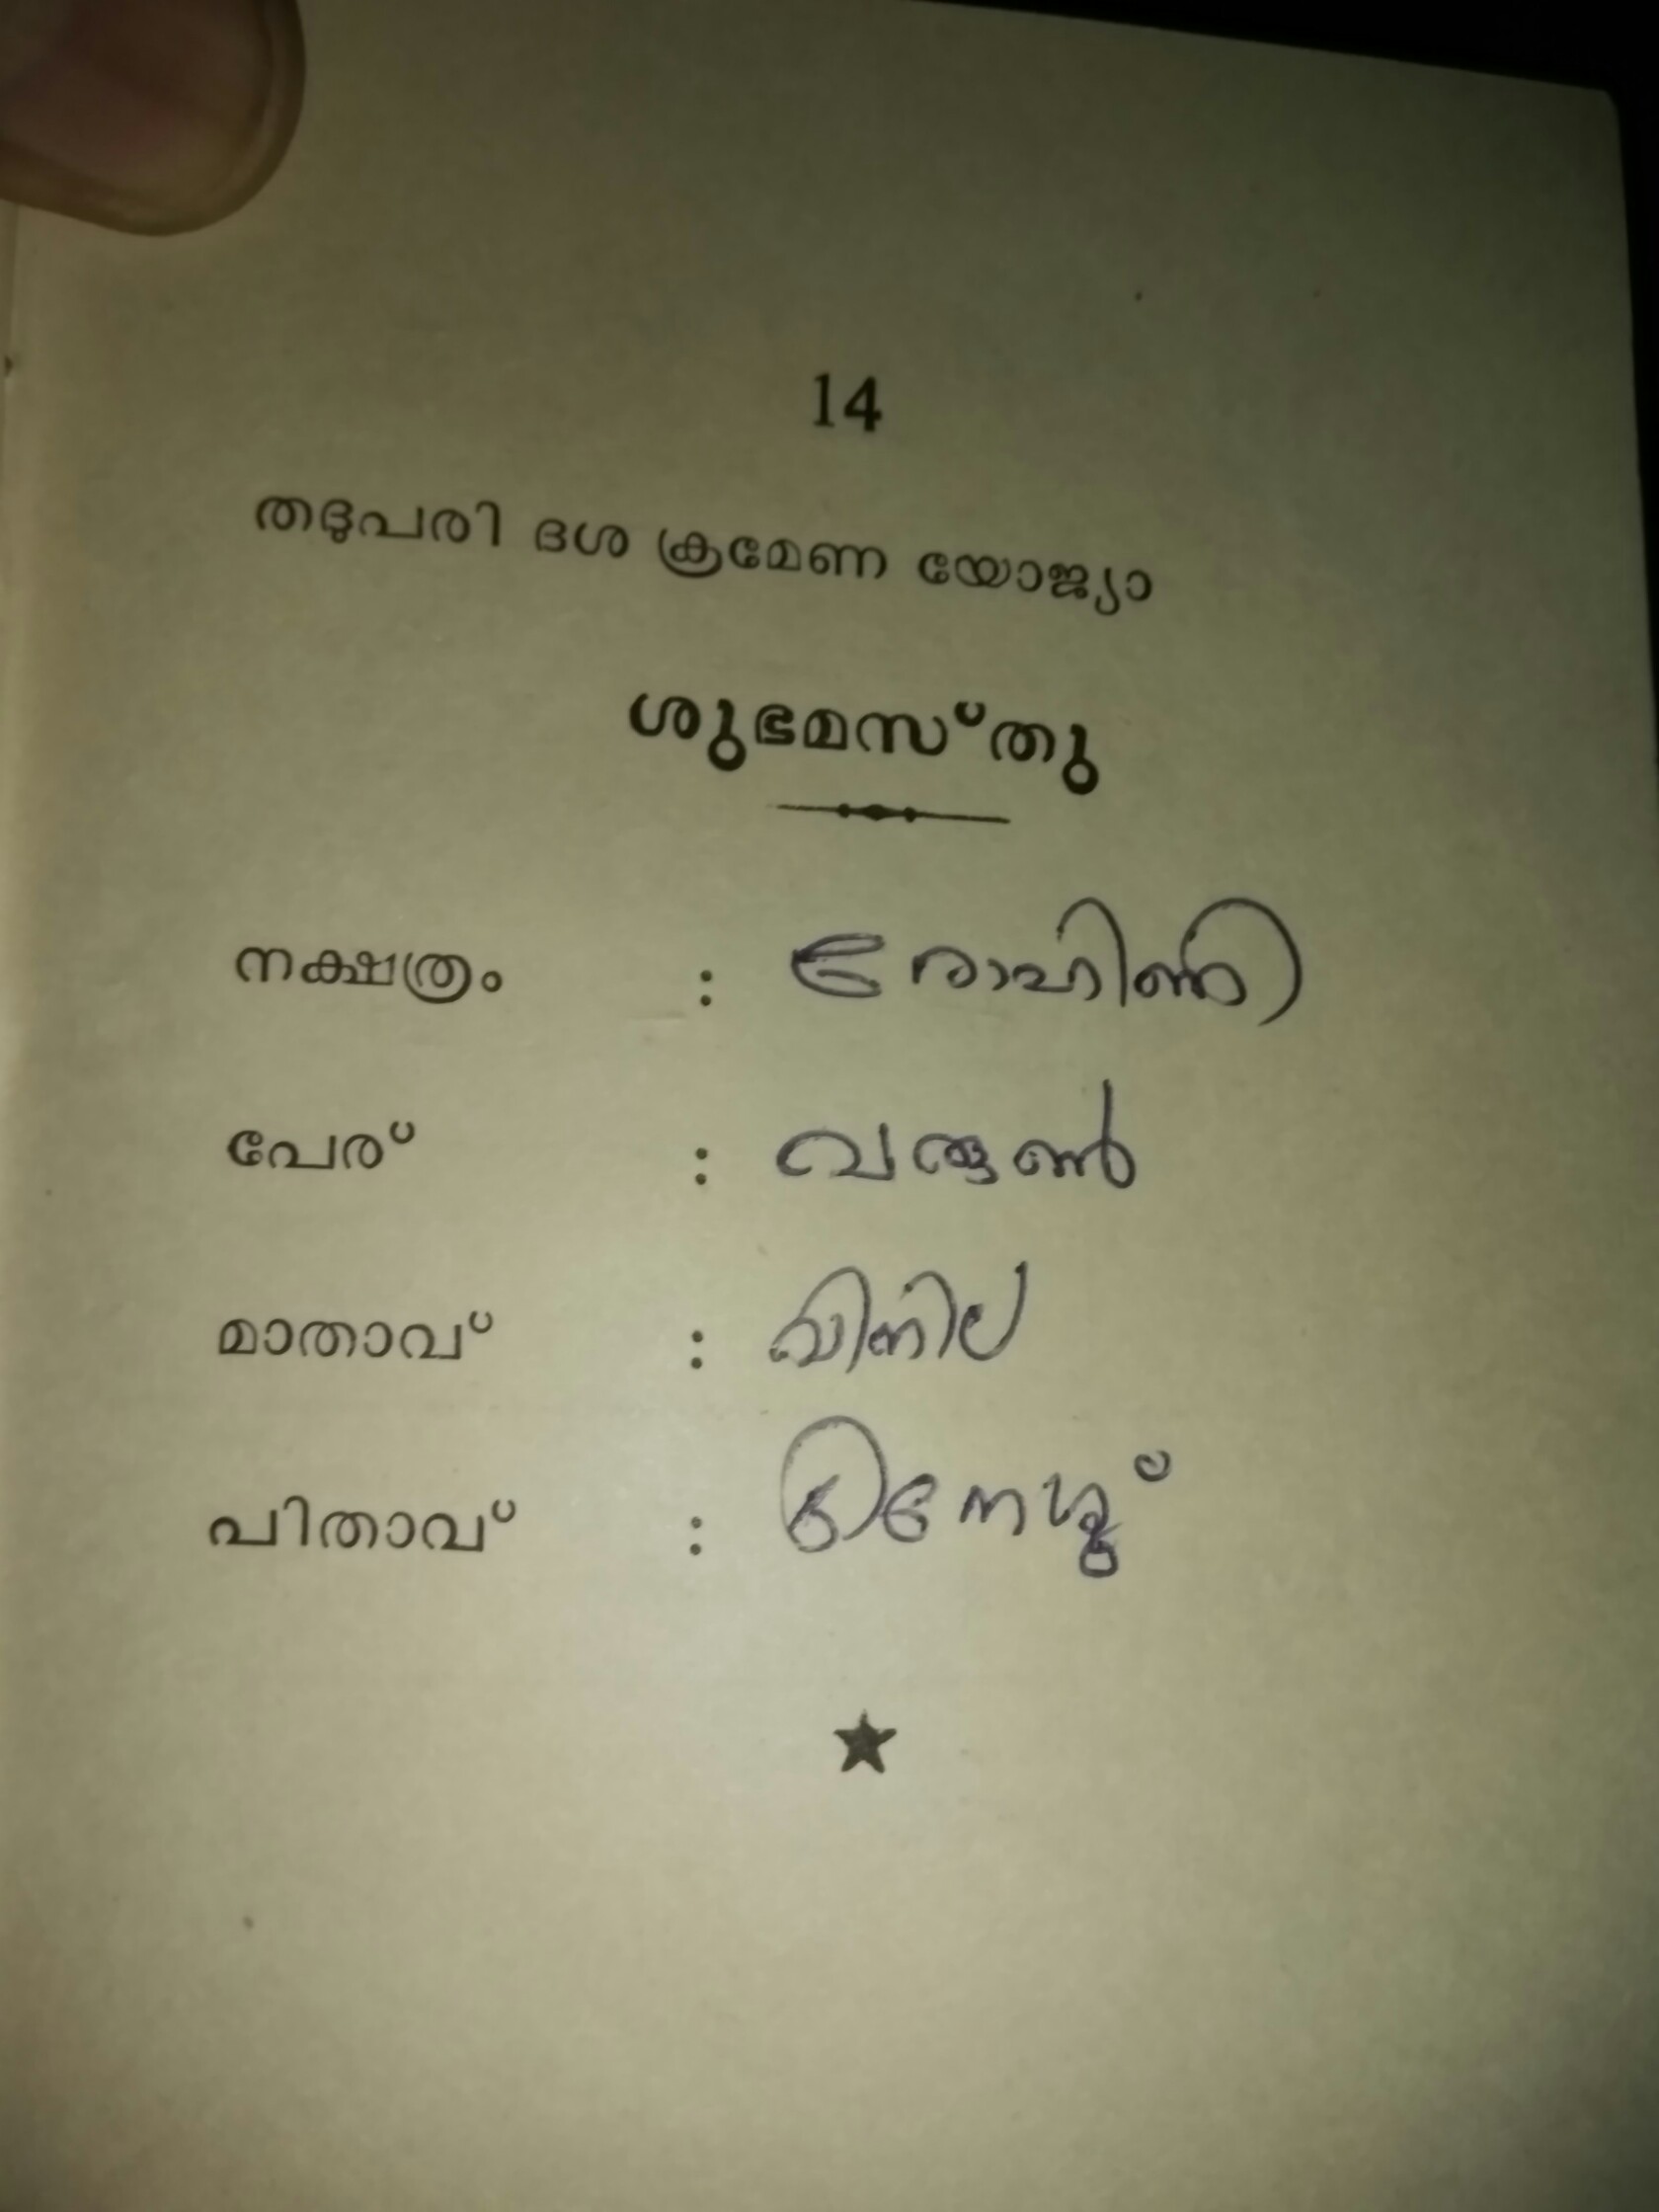 14
തദുപരി ദശ ക്രമേണ യോജ്യാ
ശുഭമസ്തു
നക്ഷത്രം : രോഹിണി
പേര് : വരുൺ
മാതാവ് : വിനില
പിതാവ് : ദിനേശ്